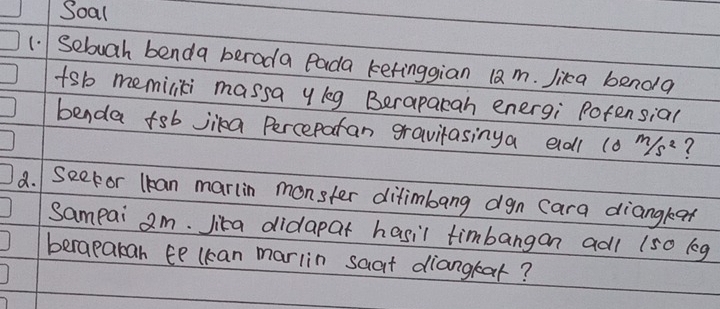 Soal
1. Sebuah benda berada Pada ketinggian 12 m. Jika benda
tsb memiliki massa 4 kg Berapakah energi Potensial
benda tsb jika Percepatan gravitasinya adl 10 m/s²?
2. Seekor Ikan marlin monster ditimbang dgn cara diangkat
Sampai 2m. Jika didapat hasil timbangan adl 150 kg
berapakah EP Ikan marlin saat diangkat?